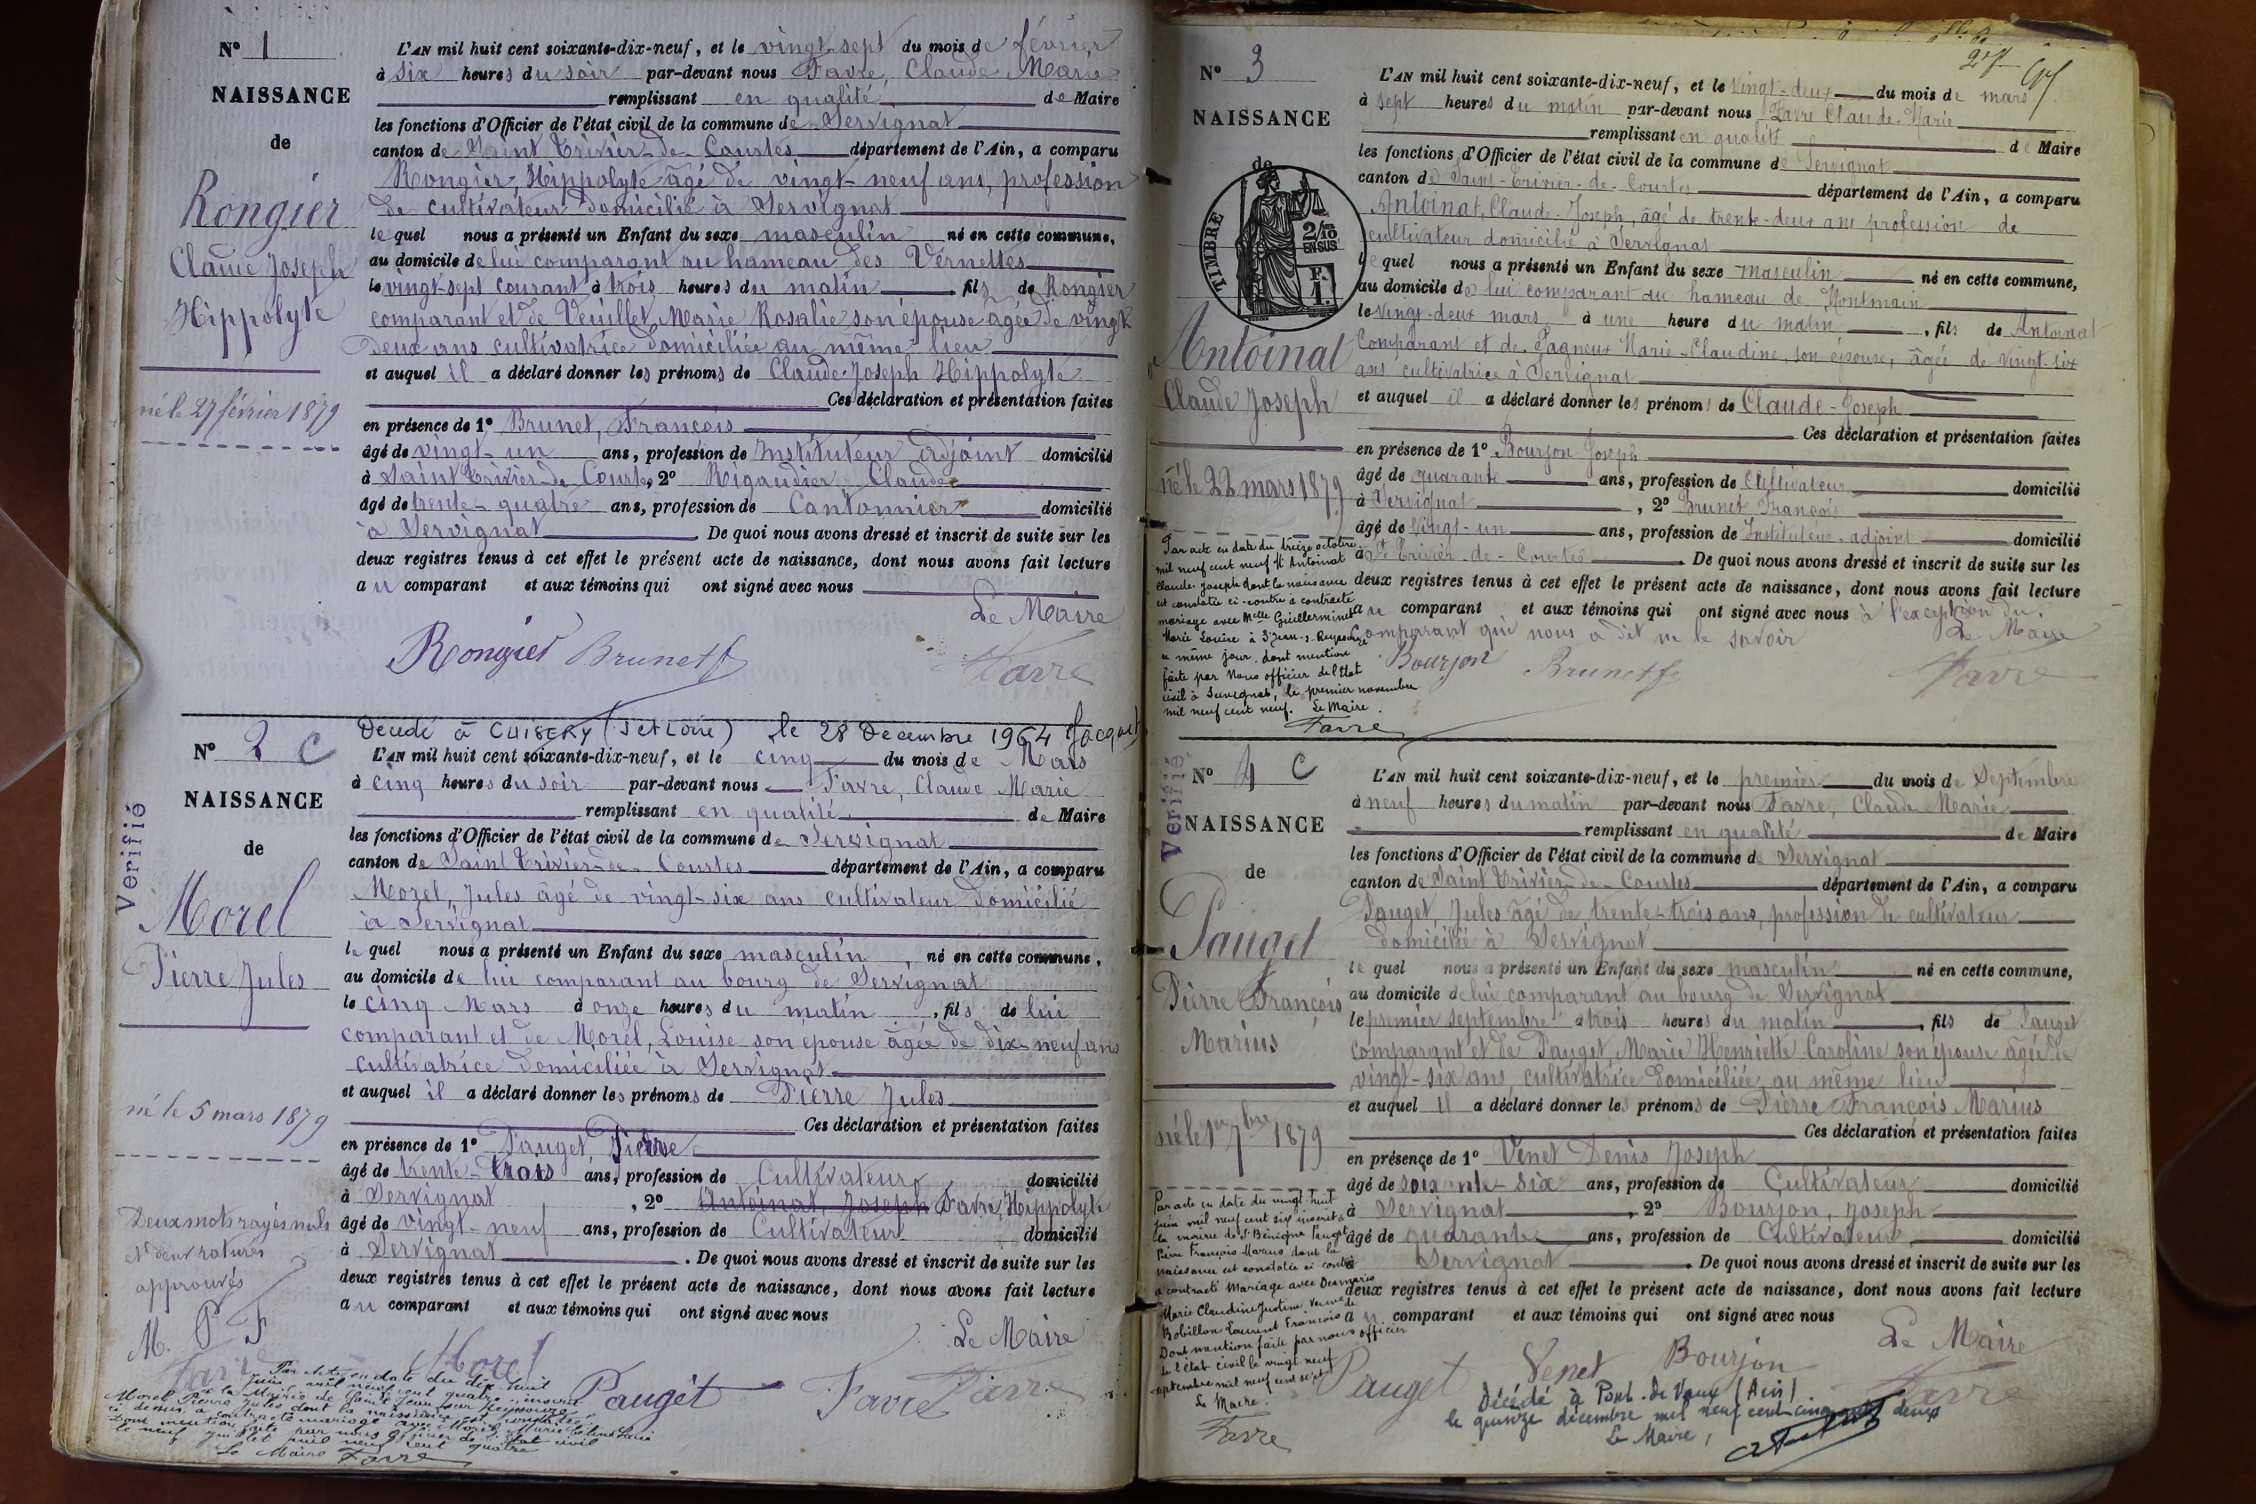 N° 1
NAISSANCE
de
Rongier
Claude Joseph
Hippolyte
né le 27 février 1879
L'AN mil huit cent soixante-dix-neuf, et le vingt-sept du mois de février
à six heures du soir par-devant nous Favre, Claude Marie
remplissant en qualité de Maire
les fonctions d'Officier de l'état civil de la commune de Servignat
canton de Saint Trivier-de-Courtes département de l'Ain, a comparu
Rongier, Hippolyte âgé de vingt-neuf ans, profession
de cultivateur domicilié à Servignat
lequel nous a présenté un Enfant du sexe masculin né en cette commune,
au domicile de lui comparant au hameau des Vernettes
le vingt-sept courant à trois heures du matin fils de Rongier
comparant et de Veuillet, Marie Rosalie son épouse âgée de vingt
deux ans cultivatrice domiciliée au même lieu
et auquel il a déclaré donner les prénoms de Claude Joseph Hippolyte
Ces déclaration et présentation faites
en présence de 1° Brunet, François
âgé de vingt-un ans, profession de Instituteur adjoint domicilié
à Saint Trivier de Courtes, 2° Rigaudier Claude
âgé de trente-quatre ans, profession de Cantonnier domicilié
à Servignat. De quoi nous avons dressé et inscrit de suite sur les
deux registres tenus à cet effet le présent acte de naissance, dont nous avons fait lecture
au comparant et aux témoins qui ont signé avec nous
Le Maire
Rongier Brunet f Favre
Décédé à CUISERY (S et Loire) le 28 Décembre 1964 Jacquet
N° 2 C
NAISSANCE
de
Verifié
Morel
Pierre Jules
né le 5 mars 1879
Deux mots rayés nuls
et deux ratures
approuvés
M. P F
L'AN mil huit cent soixante-dix-neuf, et le cinq du mois de Mars
à cinq heures du soir par-devant nous Favre, Claude Marie
remplissant en qualité de Maire
les fonctions d'Officier de l'état civil de la commune de Servignat
canton de Saint Trivier-de-Courtes département de l'Ain, a comparu
Morel, Jules âgé de vingt-six ans cultivateur domicilié
à Servignat
le quel nous a présenté un Enfant du sexe masculin, né en cette commune,
au domicile de lui comparant au bourg de Servignat
le cinq Mars à onze heures du matin, fils de lui
comparant et de Morel, Louise son épouse âgée de dix-neuf ans
cultivatrice domiciliée à Servignat
et auquel il a déclaré donner les prénoms de Pierre Jules
Ces déclaration et présentation faites
en présence de 1° Pauget, Pierre
âgé de trente-trois ans, profession de Cultivateur domicilié
à Servignat, 2° Antoinat, Joseph Favre, Hippolyte
âgé de vingt-neuf ans, profession de Cultivateur domicilié
à Servignat. De quoi nous avons dressé et inscrit de suite sur les
deux registres tenus à cet effet le présent acte de naissance, dont nous avons fait lecture
au comparant et aux témoins qui ont signé avec nous
Le Maire
Favre Morel Pauget Favre Favre
Par acte en date du dix huit
juin mil neuf cent quatre inscrit
à la Mairie de Saint Jean sur Reyssouze
Morel Pierre Jules dont la naissance est constatée
ci dessus a contracté mariage avec Morel Marie
Dont mention faite par nous officier de l'état civil
le neuf juillet mil neuf cent quatre
Le Maire Favre
N° 3
NAISSANCE
de
TIMBRE
2/10 EN SUS
F. 1.
Antoinat
Claude Joseph
né le 22 mars 1879
Par acte en date du treize octobre
mil neuf cent neuf St Antoinat
Claude Joseph dont la naissance
est constatée ci-contre a contracté
mariage avec Melle Guillerminet
Marie Louise à St Jean-s-Reyssouze
le même jour. dont mention
faite par Nous officier de l'Etat
civil à Servignat, le premier novembre
mil neuf cent neuf. Le Maire.
Favre
L'AN mil huit cent soixante-dix-neuf, et le vingt-deux du mois de mars
à sept heures du matin par-devant nous Favre Claude Marie
remplissant en qualité de Maire
les fonctions d'Officier de l'état civil de la commune de Servignat
canton de Saint-Trivier-de-Courtes département de l'Ain, a comparu
Antoinat, Claude-Joseph, âgé de trente-deux ans profession de
cultivateur domicilié à Servignat
le quel nous a présenté un Enfant du sexe masculin né en cette commune,
au domicile de lui comparant au hameau de Montmain
le vingt-deux mars à une heure du matin, fils de Antoinat
Comparant et de Pagneux Marie-Claudine, son épouse, âgée de vingt-six
ans cultivatrice à Servignat
et auquel il a déclaré donner les prénoms de Claude-Joseph
Ces déclaration et présentation faites
en présence de 1° Bourjon Joseph
âgé de quarante ans, profession de Cultivateur domicilié
à Servignat, 2° Brunet François
âgé de vingt-un ans, profession de Instituteur-adjoint domicilié
à St Trivier-de-Courtes. De quoi nous avons dressé et inscrit de suite sur les
deux registres tenus à cet effet le présent acte de naissance, dont nous avons fait lecture
au comparant et aux témoins qui ont signé avec nous à l'exception du
Comparant qui nous a dit ne le savoir Le Maire
Bourjon Brunet f Favre
N° 4 C
NAISSANCE
de
Verifié
Pauget
Pierre François
Marius
né le 1er 7bre 1879
Par acte en date du vingt huit
juin mil neuf cent six inscrit à
la mairie de St Bénigne Pauget
Pierre François Marius dont la
naissance est constatée ci contre
a contracté Mariage avec
Marie Claudine Justine Veuve de
Bobillon Laurent François
Dont mention faite par nous officier
de l'état civil le vingt neuf
septembre mil neuf cent sept
Le Maire.
Favre
L'AN mil huit cent soixante-dix-neuf, et le premier du mois de Septembre
à neuf heures du matin par-devant nous Favre, Claude Marie
remplissant en qualité de Maire
les fonctions d'Officier de l'état civil de la commune de Servignat
canton de Saint Trivier-de-Courtes département de l'Ain, a comparu
Pauget, Jules âgé de trente-trois ans, profession de cultivateur
domicilié à Servignat
le quel nous a présenté un Enfant du sexe masculin né en cette commune,
au domicile de lui comparant au bourg de Servignat
le premier septembre à trois heures du matin, fils de Pauget
comparant et de Pauget, Marie Henriette Caroline son épouse âgée de
vingt-six ans, cultivatrice domiciliée au même lieu
et auquel il a déclaré donner les prénoms de Pierre François Marius
Ces déclaration et présentation faites
en présence de 1° Venet Denis Joseph
âgé de soixante-six ans, profession de Cultivateur domicilié
à Servignat, 2° Bourjon, Joseph
âgé de quarante ans, profession de Cultivateur domicilié
à Servignat. De quoi nous avons dressé et inscrit de suite sur les
deux registres tenus à cet effet le présent acte de naissance, dont nous avons fait lecture
au comparant et aux témoins qui ont signé avec nous
Le Maire
Pauget Venet Bourjon Favre
Décédé à Pont-de-Vaux (Ain)
le quinze décembre mil neuf cent cinquante deux
Le Maire,